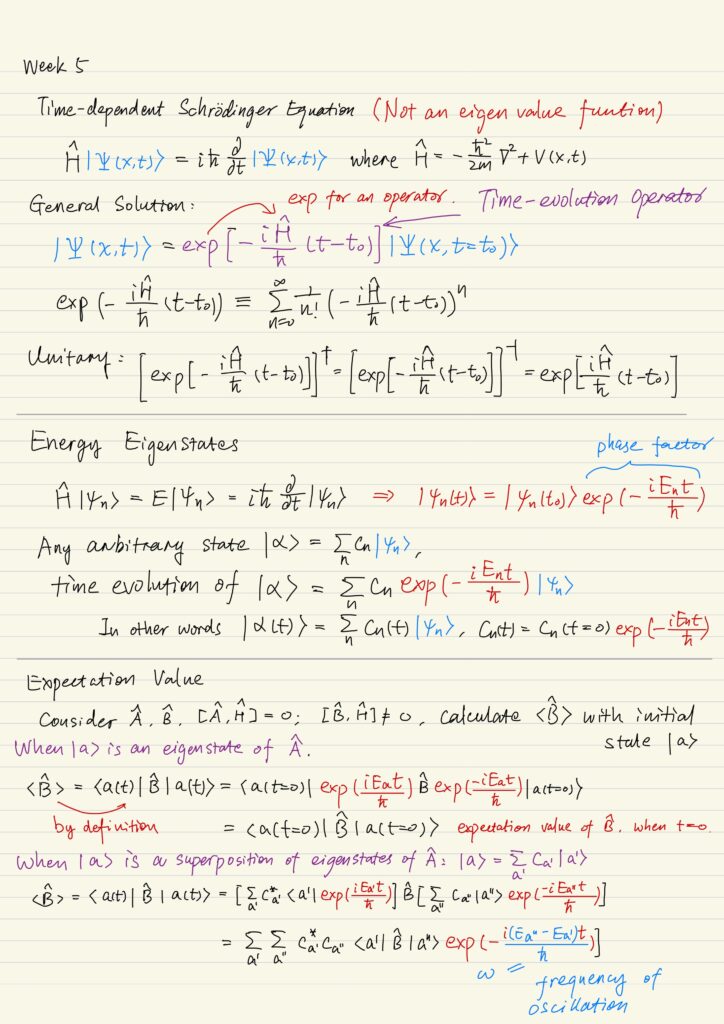 Week 5
Time-dependent Schrödinger Equation (Not an eigen value funtion)
Ĥ|Ψ(x,t)⟩ = iħ ∂/∂t |Ψ(x,t)⟩ where Ĥ = -ħ²/2m ∇² + V(x,t)
General Solution: exp for an operator. Time-evolution Operator
|Ψ(x,t)⟩ = exp[-iĤ/ħ (t-t₀)]|Ψ(x,t=t₀)⟩
exp(-iĤ/ħ (t-t₀)) ≡ ∑_{n=0}^{∞} 1/n! (-iĤ/ħ (t-t₀))ⁿ
Unitary: [exp[-iĤ/ħ (t-t₀)]]† = [exp[-iĤ/ħ (t-t₀)]]⁻¹ = exp[iĤ/ħ (t-t₀)]
Energy Eigenstates phase factor
Ĥ|ψₙ⟩ = E|ψₙ⟩ = iħ ∂/∂t |ψₙ⟩ ⇒ |ψₙ(t)⟩ = |ψₙ(t₀)⟩ exp(-iEₙt/ħ)
Any arbitrary state |α⟩ = ∑ₙ Cₙ|ψₙ⟩,
time evolution of |α⟩ = ∑ₙ Cₙ exp(-iEₙt/ħ)|ψₙ⟩
In other words |α(t)⟩ = ∑ₙ Cₙ(t)|ψₙ⟩, Cₙ(t) = Cₙ(t=0) exp(-iEₙt/ħ)
Expectation Value
Consider Â, B̂, [Â,Ĥ]=0; [B̂,Ĥ]≠0, calculate ⟨B̂⟩ with initial
state |a⟩
When |a⟩ is an eigenstate of Â.
⟨B̂⟩ = ⟨a(t)|B̂|a(t)⟩ = ⟨a(t=0)| exp(iE_a t/ħ) B̂ exp(-iE_a t/ħ)|a(t=0)⟩
by definition = ⟨a(t=0)|B̂|a(t=0)⟩ expectation value of B̂, when t=0.
When |a⟩ is a superposition of eigenstates of Â: |a⟩ = ∑_{a'} C_{a'}|a'⟩
⟨B̂⟩ = ⟨a(t)|B̂|a(t)⟩ = [∑_{a'} C*_{a'} ⟨a'| exp(iE_{a'}t/ħ)] B̂ [∑_{a''} C_{a''}|a''⟩ exp(-iE_{a''}t/ħ)]
= ∑_{a'} ∑_{a''} C*_{a'} C_{a''} ⟨a'|B̂|a''⟩ exp(-i(E_{a''} - E_{a'})t/ħ)]
ω = frequency of
oscillation